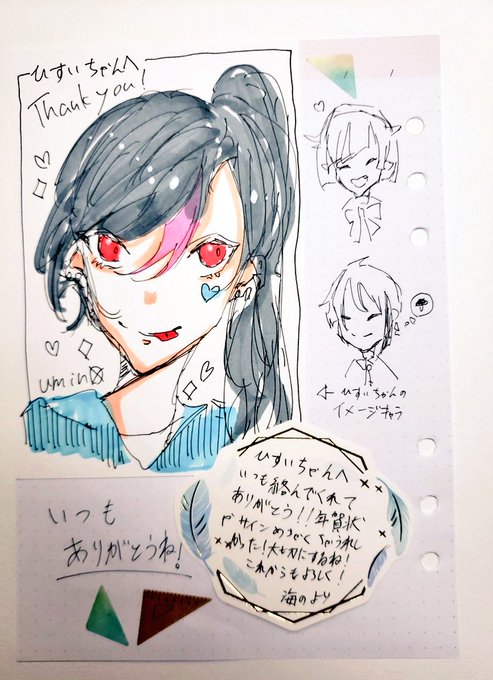 ひすいちゃんへ
Thank you!
umino
← ひすいちゃんの
イメージキャラ
いつも
ありがとうね!
ひすいちゃんへ
いつも絡んでくれて
ありがとう!!年賀状
やサインめちゃくちゃうれし
かった!大切にするね!
これからもよろしく!
海のより